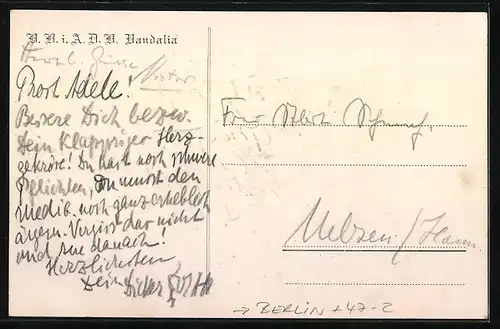 V. B. i. A. D. B. Vandalia
Herzl. Grüsse
Prost Adele!
Bessere Dich bezw.
Dein klappriges Herz-
gekröse! Du hast noch schwere
Pflichten, Du musst den
medib. noch ganz erheblich
ärgern. Vergiss das nicht
und tue danach!
Herzlichsten
Dein Dieter
Frau
Uelzen / Hann.
→ BERLIN +47-2